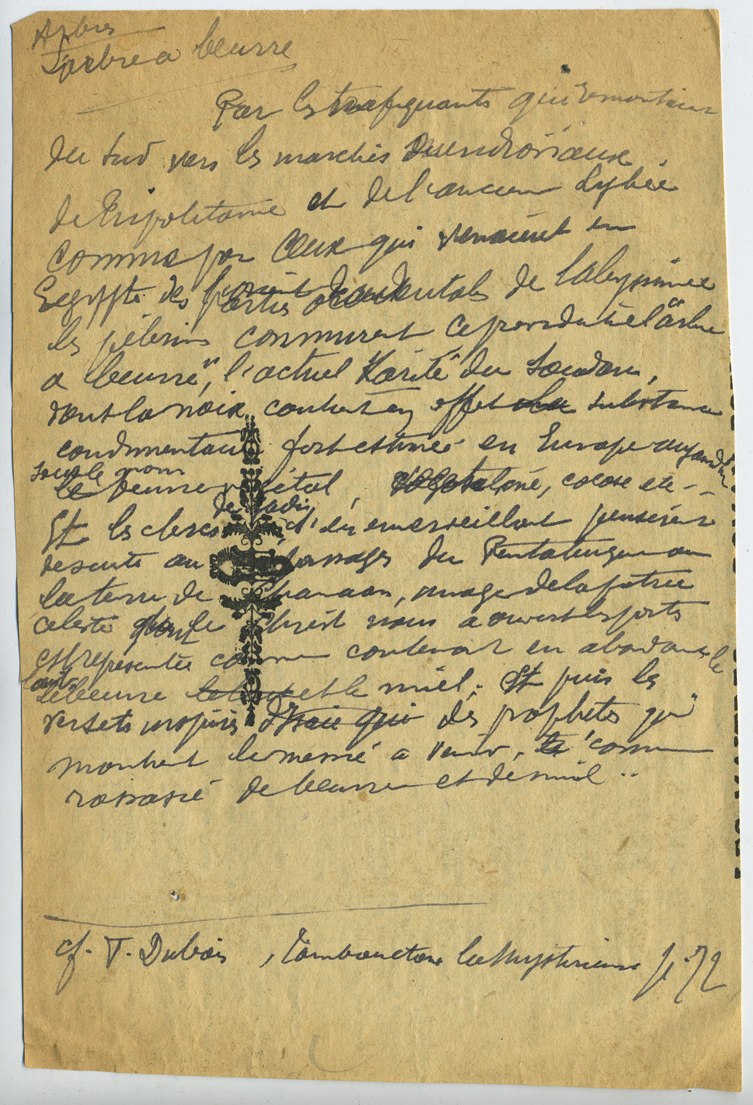 Arbres
L'arbre a beurre
Par les trafiquants qui remontaient
du sud vers les marchés
de Tripolitaine et de l'ancienne Lybie
comme par ceux qui venaient en
Egypte des parties occidentales de l'abyssinie
les pèlerins connurent ce providentiel "arbre
a beurre", l'actuel Karité du Soudan,
dont la noix contient en effet substance
fort estimée en Europe aujourd'hui
sous le nom
le beurre végétal, cocose etc -
Et les clercs de jadis s'émerveillant pensèrent
au passages du Pentateuque ou
la terre de Chanaan, image de la patrie
celeste le Christ nous a ouvert les portes
est representée comme contenant en abondance le
lait
le beurre et le miel; Et puis les
versets inspirés des prophetes qui
montrent le messie a venir, comme
rassasié de beurre et de miel..
cf. F. Dubois, Tombouctou la Mysterieuse p. 72